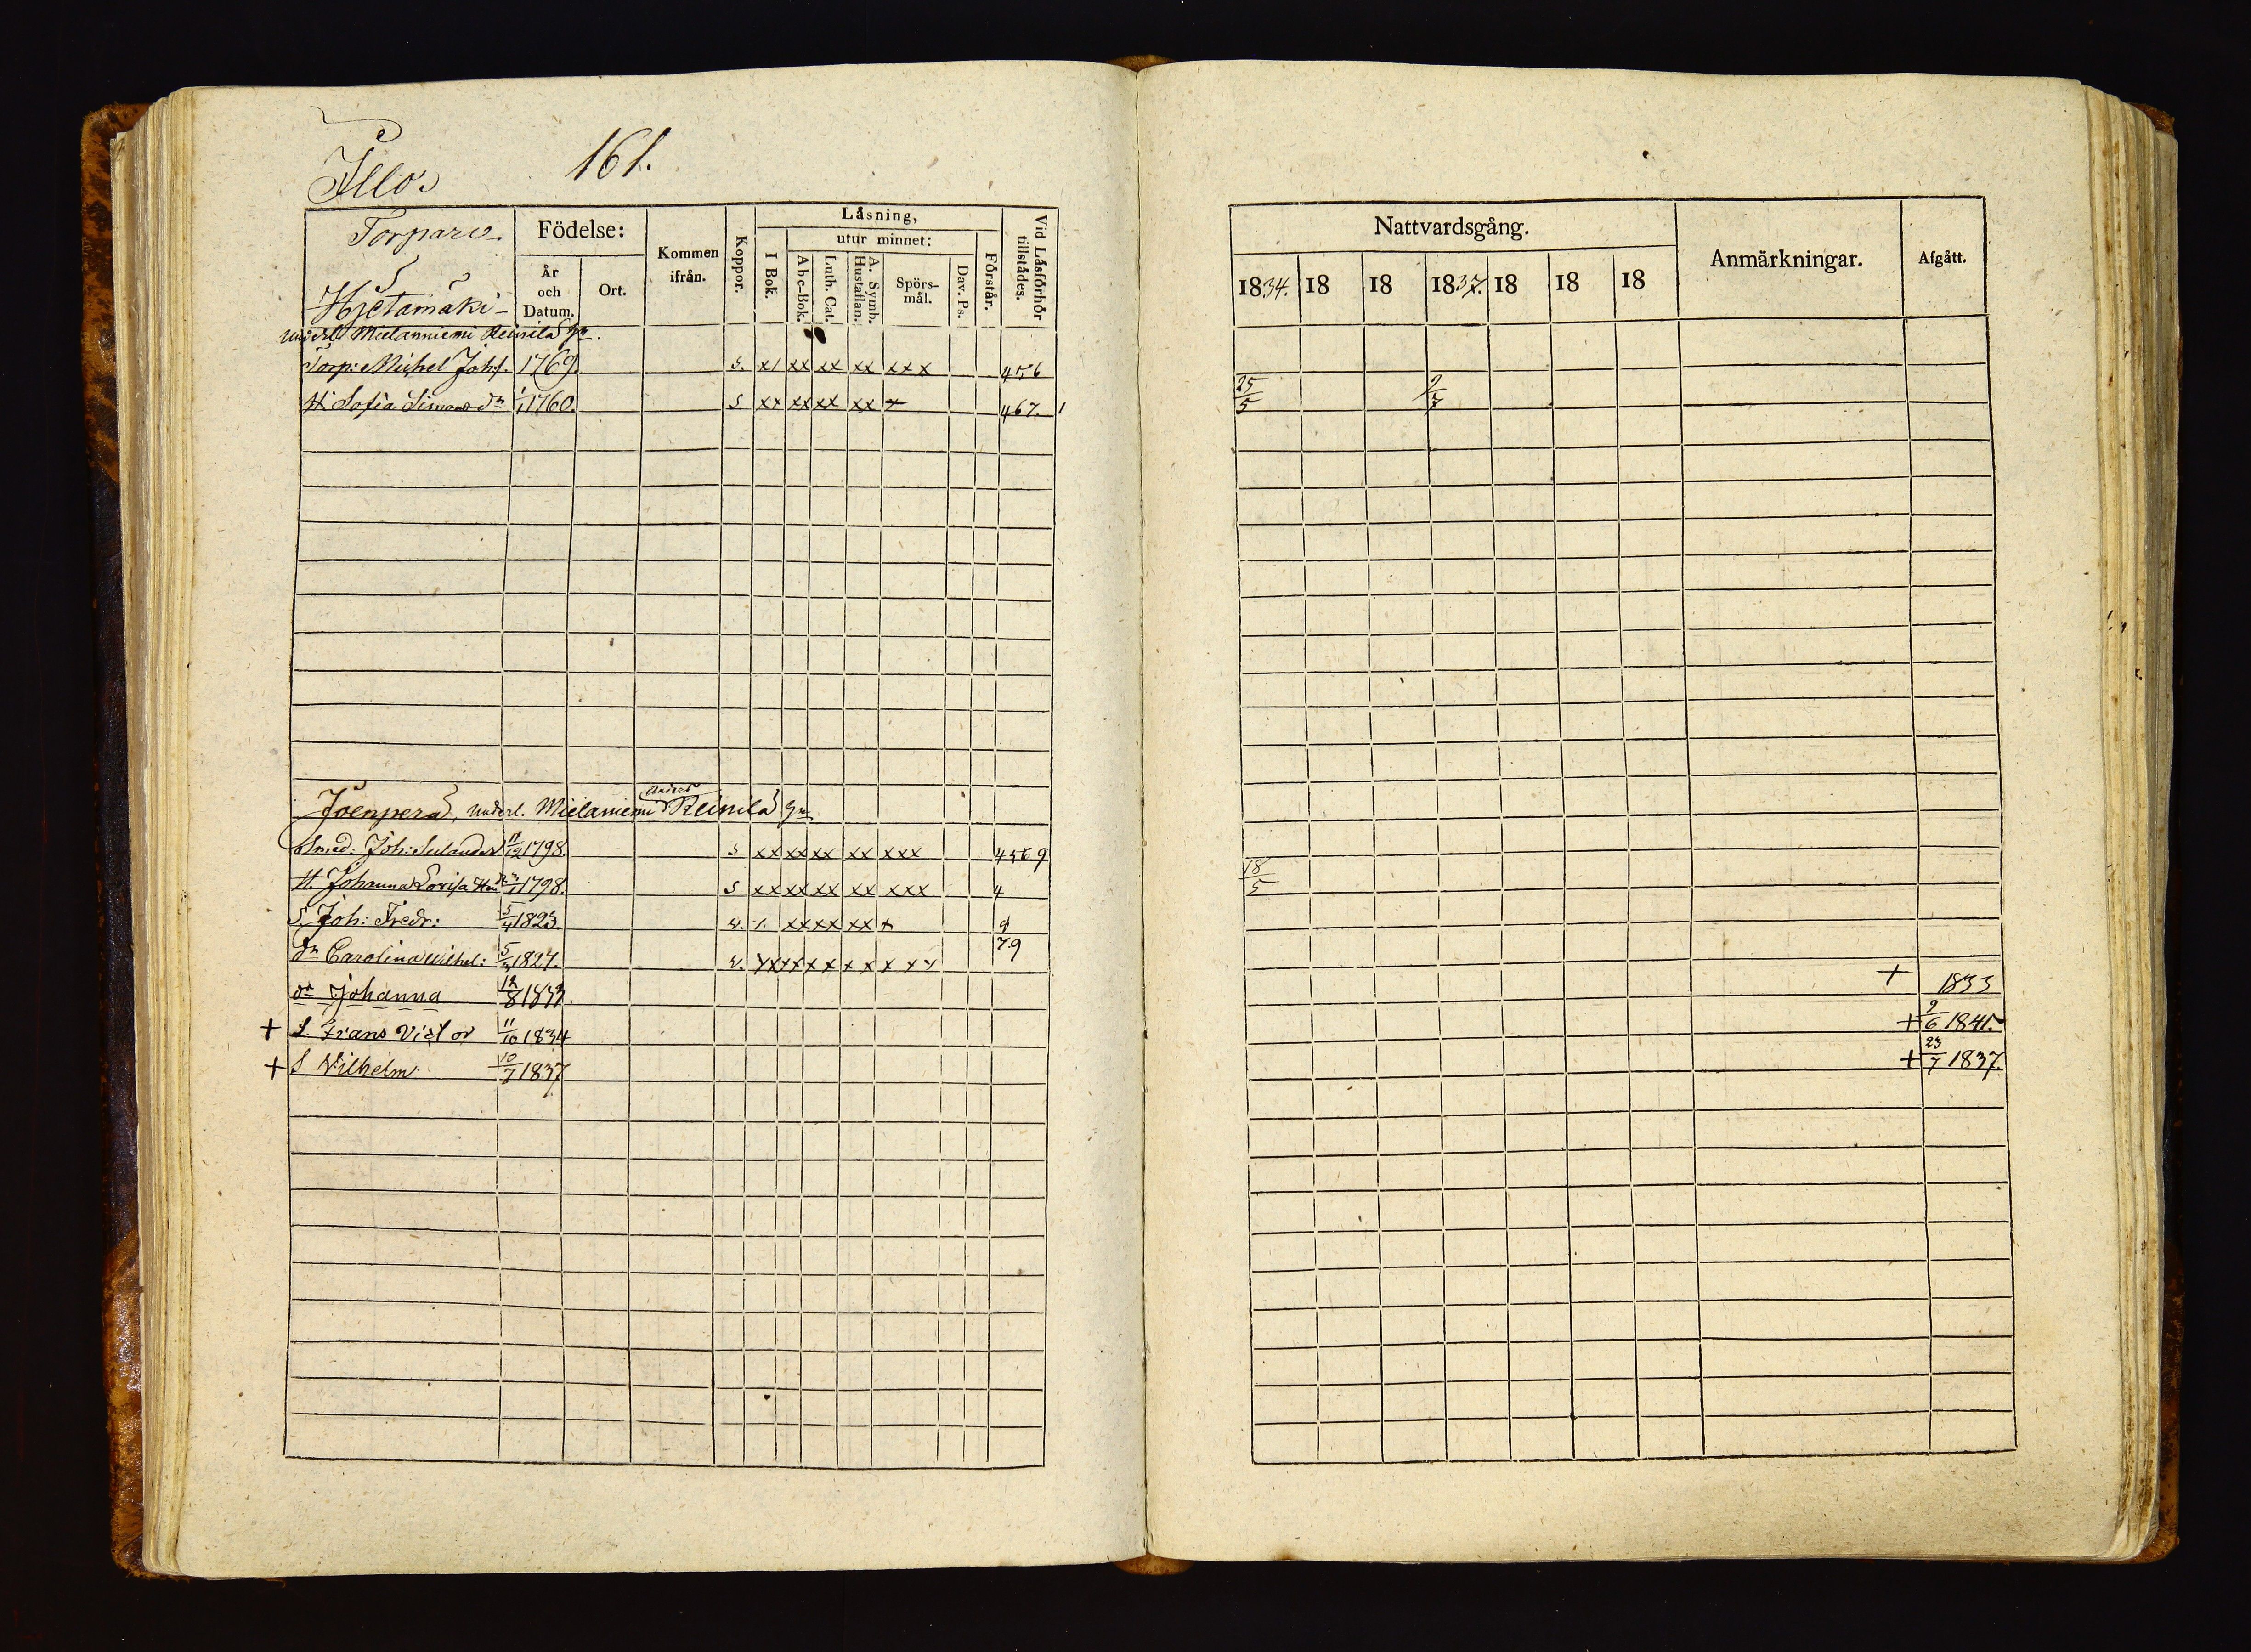 Illo.
161.
Torpare
Hjetamäki
Födelse:
År och Datum.
Ort.
Kommen ifrån.
Koppor.
Låsning,
I Bok.
utur minnet:
Abc-Bok.
Luth. Cat.
A. Symb. Hustaflan.
Spörs-mål.
Dav. Ps.
Förstår.
Vid Låsförhör tillstådes.
Underl. Mielanniemi Reinilä
Torp: Michel Joh:s. 1769. s. x/ xx xx xx xxx 456
H. Sofia Simonsdr 1/1 1760. s xx xx xx xx 467. 1
Joenperä, underl. Mielaniemi Anders Reinilä
Smed: Joh: Selander 11/12 1798. s xx xx xx xx xxx 4569
H. Johanna Lovisa 1798. s xx xx xx xx xxx 4
S. Joh: Fredr: 5/4 1823. v. /. xx xx xx + 9
dr Carolina Wilhel: 1827. v. xx xx xx xx x x x 7.9
dr Johanna 12/8 1833
+ S. Frans Victor 11/10 1834
+ S Vilhelm 10/7 1837.
Nattvardsgång.
Anmärkningar.
Afgått.
1834. 18 18 1837. 18 18 18
25/5 2/7
18/5
+ 1833
+ 9/6 1841.
+ 23/7 1837.